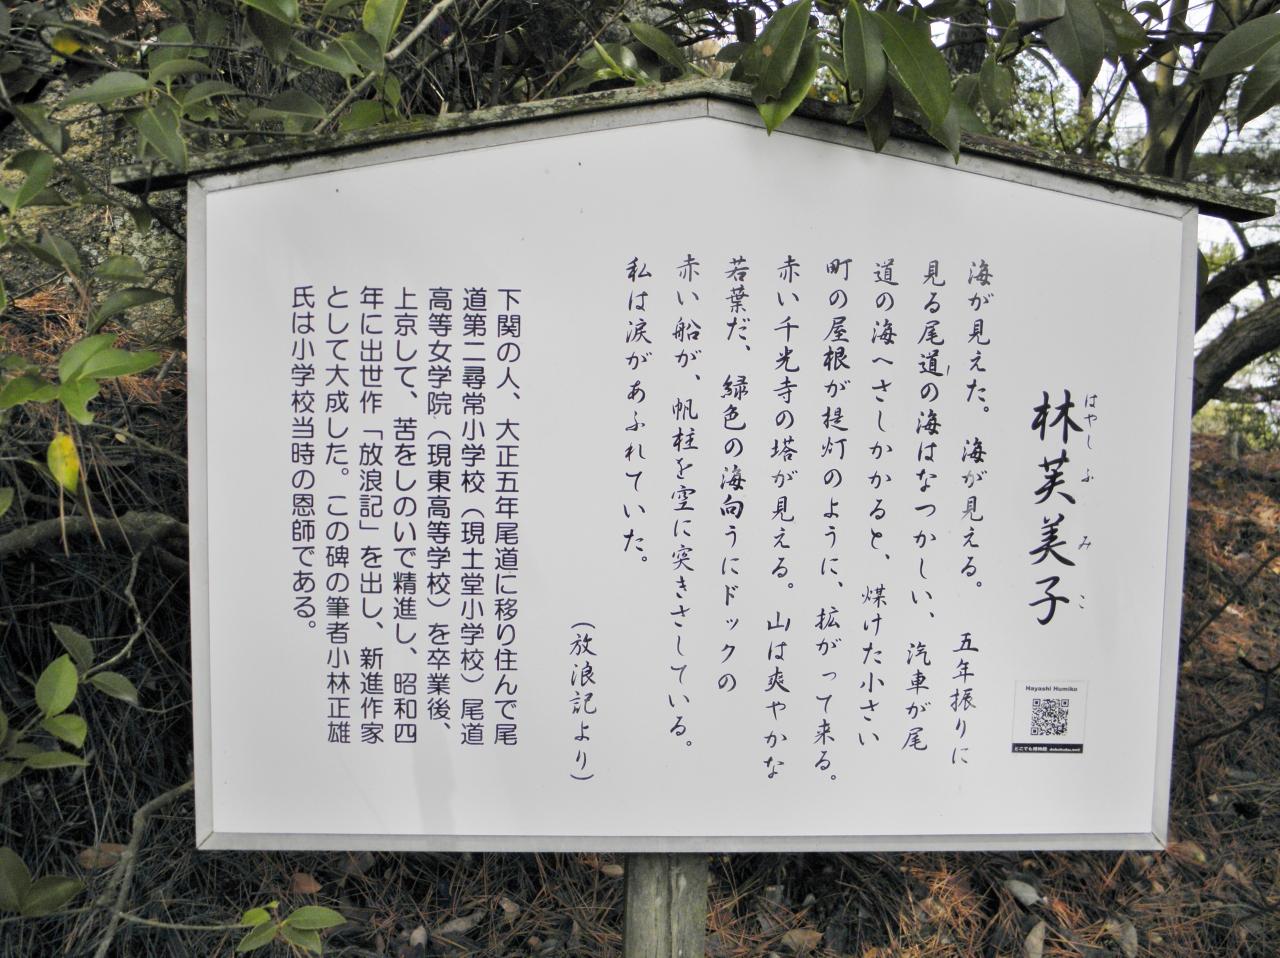 林芙美子
はやしふみこ
海が見えた。海が見える。五年振りに
見る尾道の海はなつかしい、汽車が尾
道の海へさしかかると、煤けた小さい
町の屋根が提灯のように、拡がって来る。
赤い千光寺の塔が見える。山は爽やかな
若葉だ、緑色の海向うにドックの
赤い船が、帆柱を空に突きさしている。
私は涙があふれていた。
（放浪記より）
下関の人、大正五年尾道に移り住んで尾
道第二尋常小学校（現土堂小学校）尾道
高等女学院（現東高等学校）を卒業後、
上京して、苦をしのいで精進し、昭和四
年に出世作「放浪記」を出し、新進作家
として大成した。この碑の筆者小林正雄
氏は小学校当時の恩師である。
Hayashi Humiko
どこでも博物館 dokohaku.net